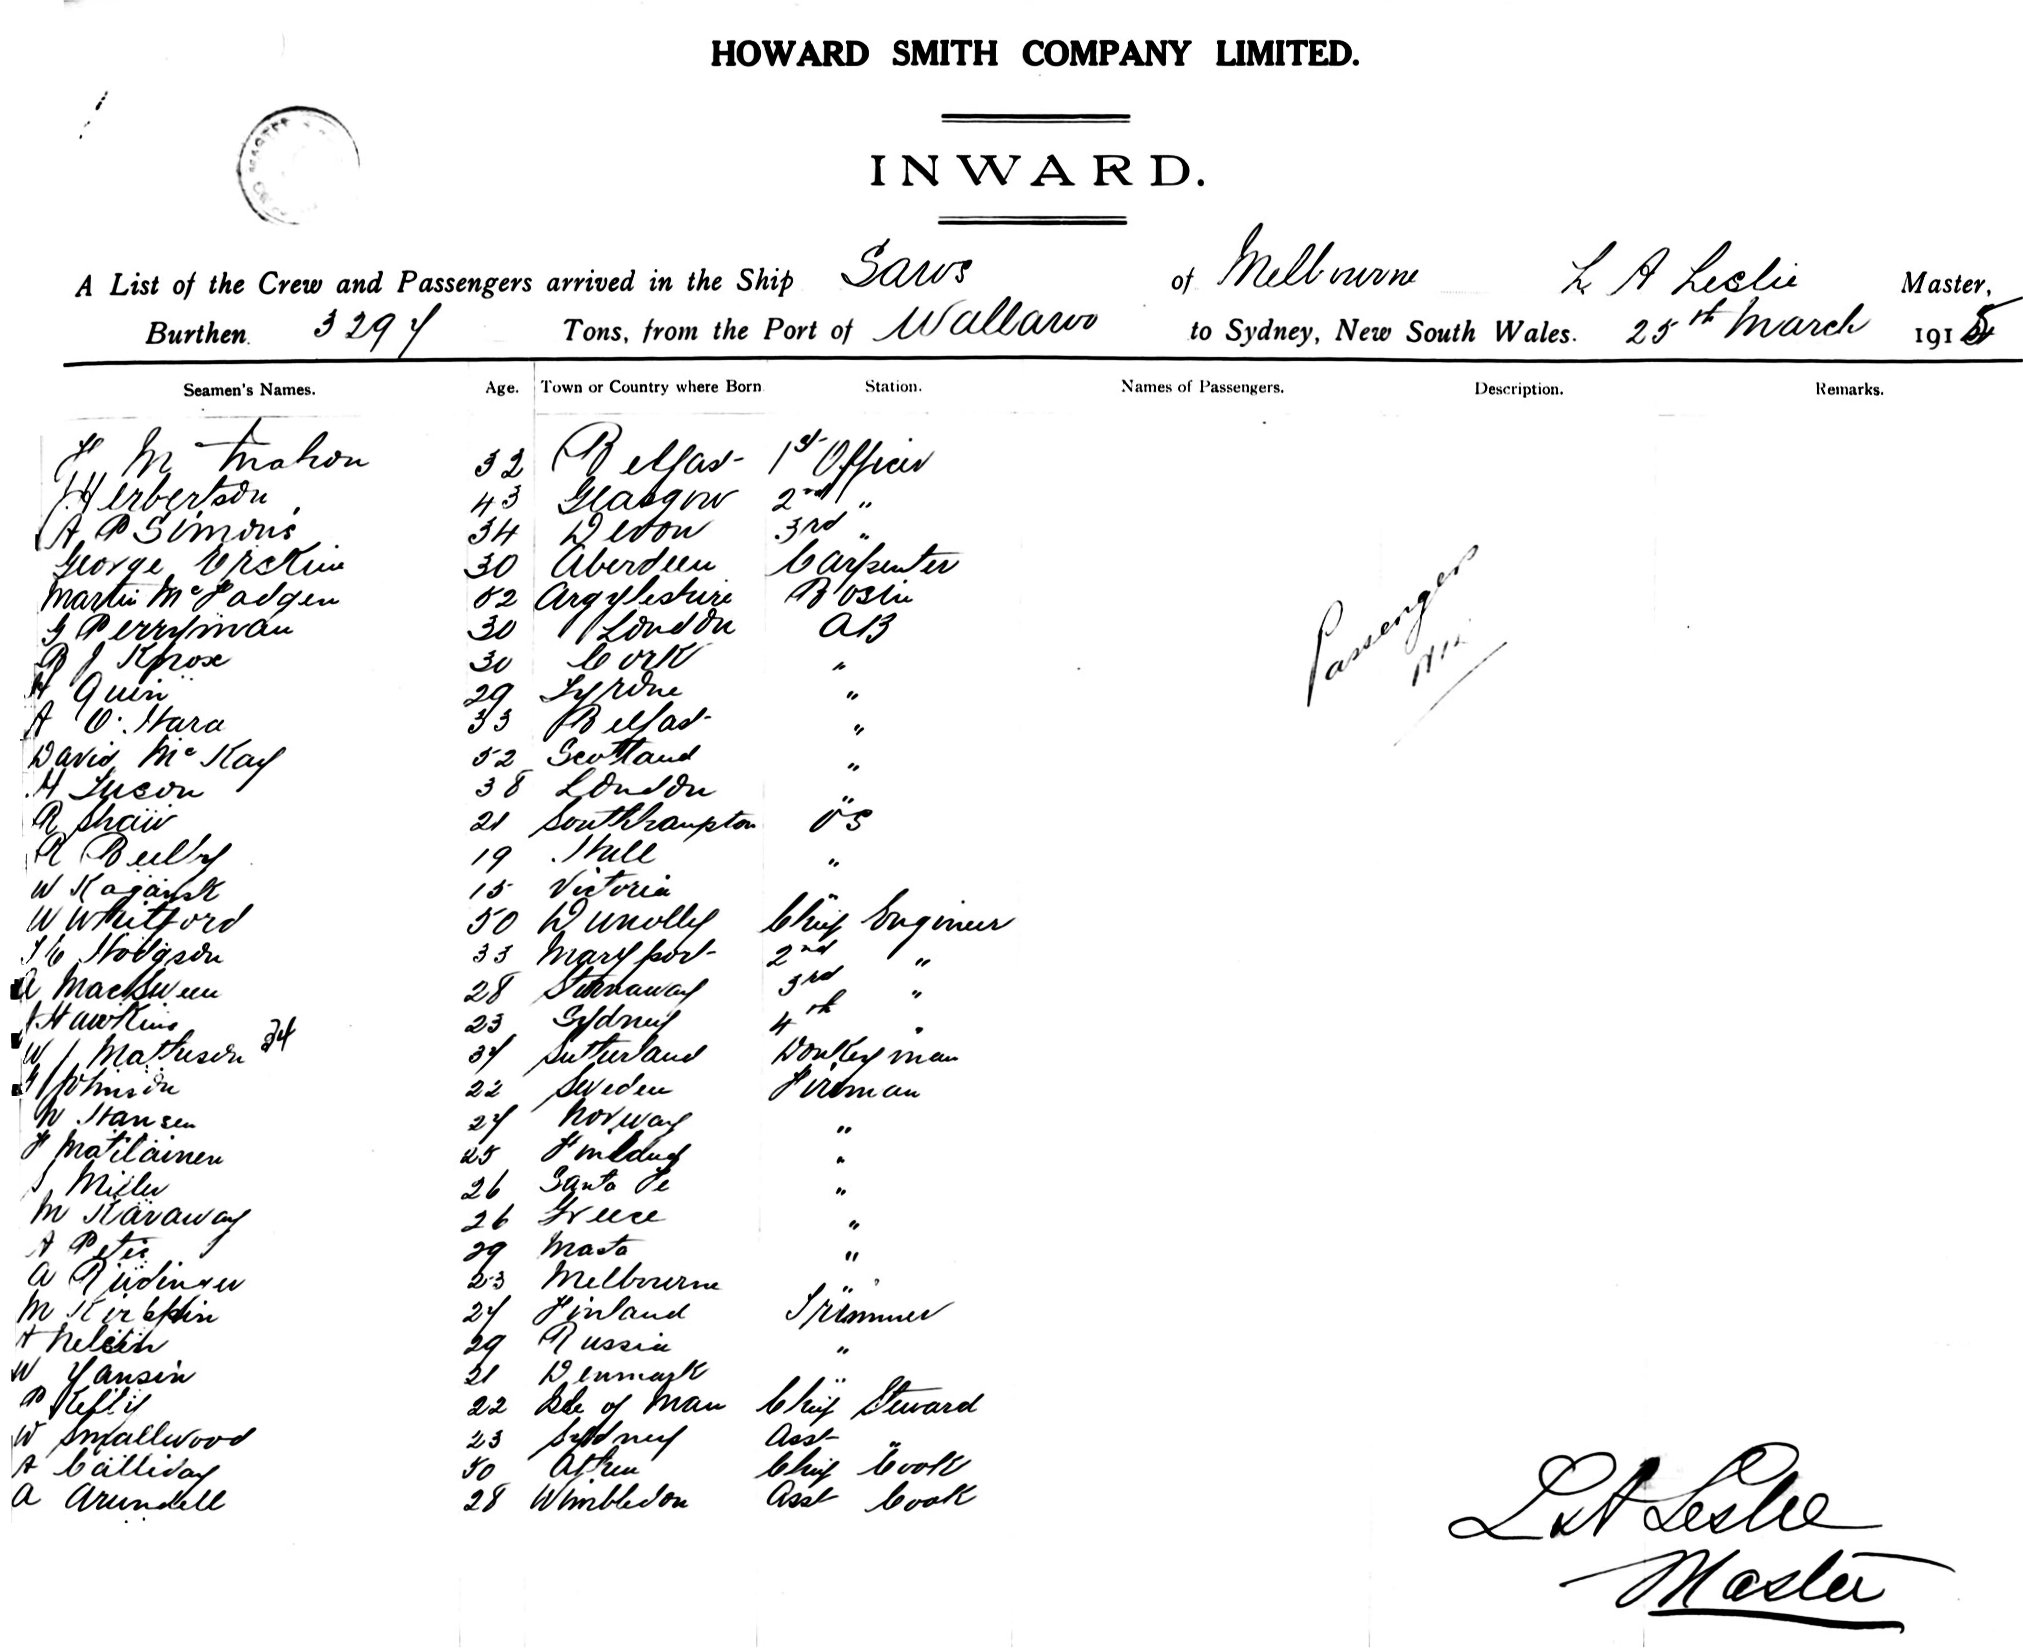 HOWARD SMITH COMPANY LIMITED.
INWARD.
A List of the Crew and Passengers arrived in the Ship Saros of Melbourne L A Leslie Master,
Burthen 3297 Tons, from the Port of Wallaroo to Sydney, New South Wales. 25th March 1915
Seamen's Names. Age. Town or Country where Born Station. Names of Passengers. Description. Remarks.
H McMahon 32 Belfast 1st Officer
J Herbertson 43 Glasgow 2nd "
A P Simons 34 Devon 3rd "
George Erskine 30 Aberdeen Carpenter
Martin McFadgen 52 Argyleshire Bosin
G Perryman 30 London AB
R J Knox 30 Cork "
H Quin 29 Tyrone "
A O'Hara 33 Belfast "
David McKay 52 Scotland "
H Tucon 38 London "
R Shaw 21 Southhampton OS
R Beilby 19 Hull "
W Kogansk 15 Victoria "
W Whitford 50 Dunolly Chief Engineer
T C Hodgson 33 Maryport 2nd "
A MacSween 28 Stornaway 3rd "
J Hawkins 23 Sydney 4th "
W J Matheson 24 37 Sutherland Donkeyman
G Johnson 22 Sweden Fireman
N Hansen 27 Norway "
H Matilainen 25 "
J Miller 26 Santa Fe "
M Karaway 26 Greece "
A Petic 29 "
A Rudinger 23 Melbourne "
M 27 Finland Trimmer
A Nelson 29 Russia "
W Yansin 21 Denmark "
P Kelly 22 Isle of Man Chief Steward
W Smallwood 23 Sydney Asst "
A Calliday 50 Chief Cook
A Arundell 28 Wimbledon Asst Cook
Passengers
Nil
L A Leslie
Master